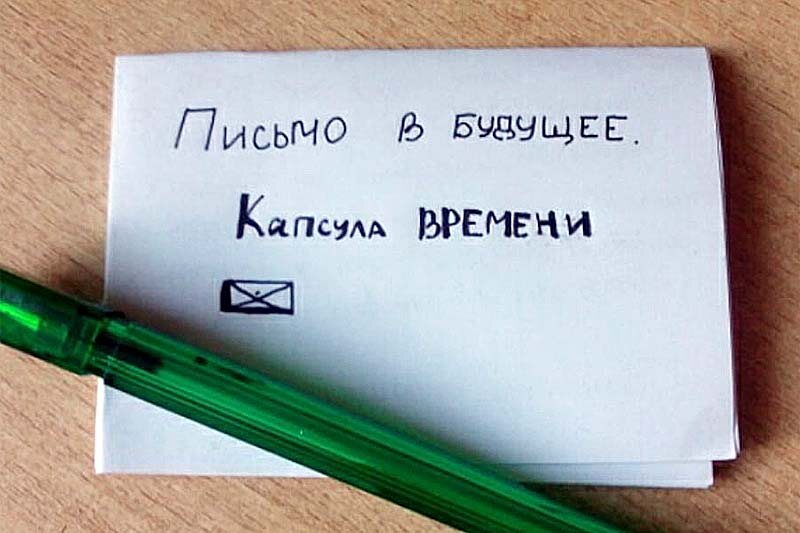 Письмо в БУДУЩЕЕ.
Капсула ВРЕМЕНИ